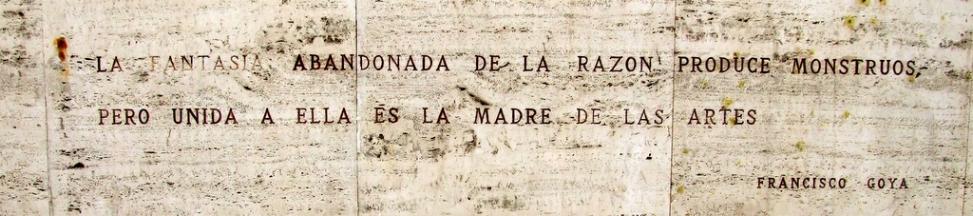 LA FANTASIA ABANDONADA DE LA RAZON PRODUCE MONSTRUOS,
PERO UNIDA A ELLA ES LA MADRE DE LAS ARTES
FRANCISCO GOYA